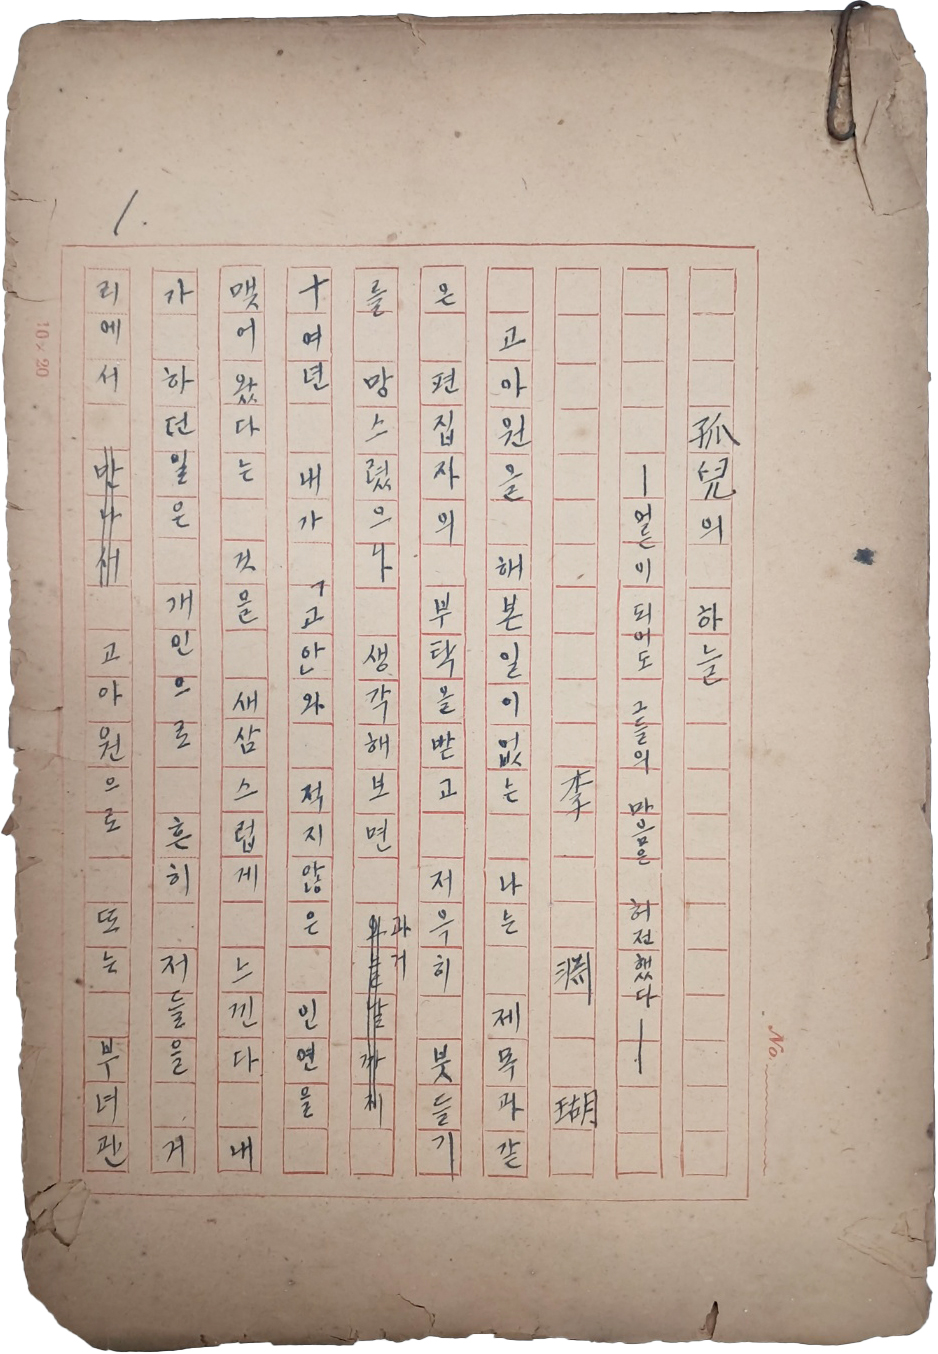 1.
No.
孤兒의 하늘
—얼른이 되어도 그들의 마음은 허전했다—
李 淵 瑚
고아원을 해본일이없는 나는 제목과같
은 편집자의 부탁을받고 저윽히 붓들기
를 망스렸으나 생각해보면 과거
十여년 내가 고안와 적지않은 인연을
맺어왔다는 것을 새삼스럽게 느낀다 내
가 하던일은 개인으로 흔히 저들을 거
리에서 만나서 고아원으로 또는 부녀관
10×20